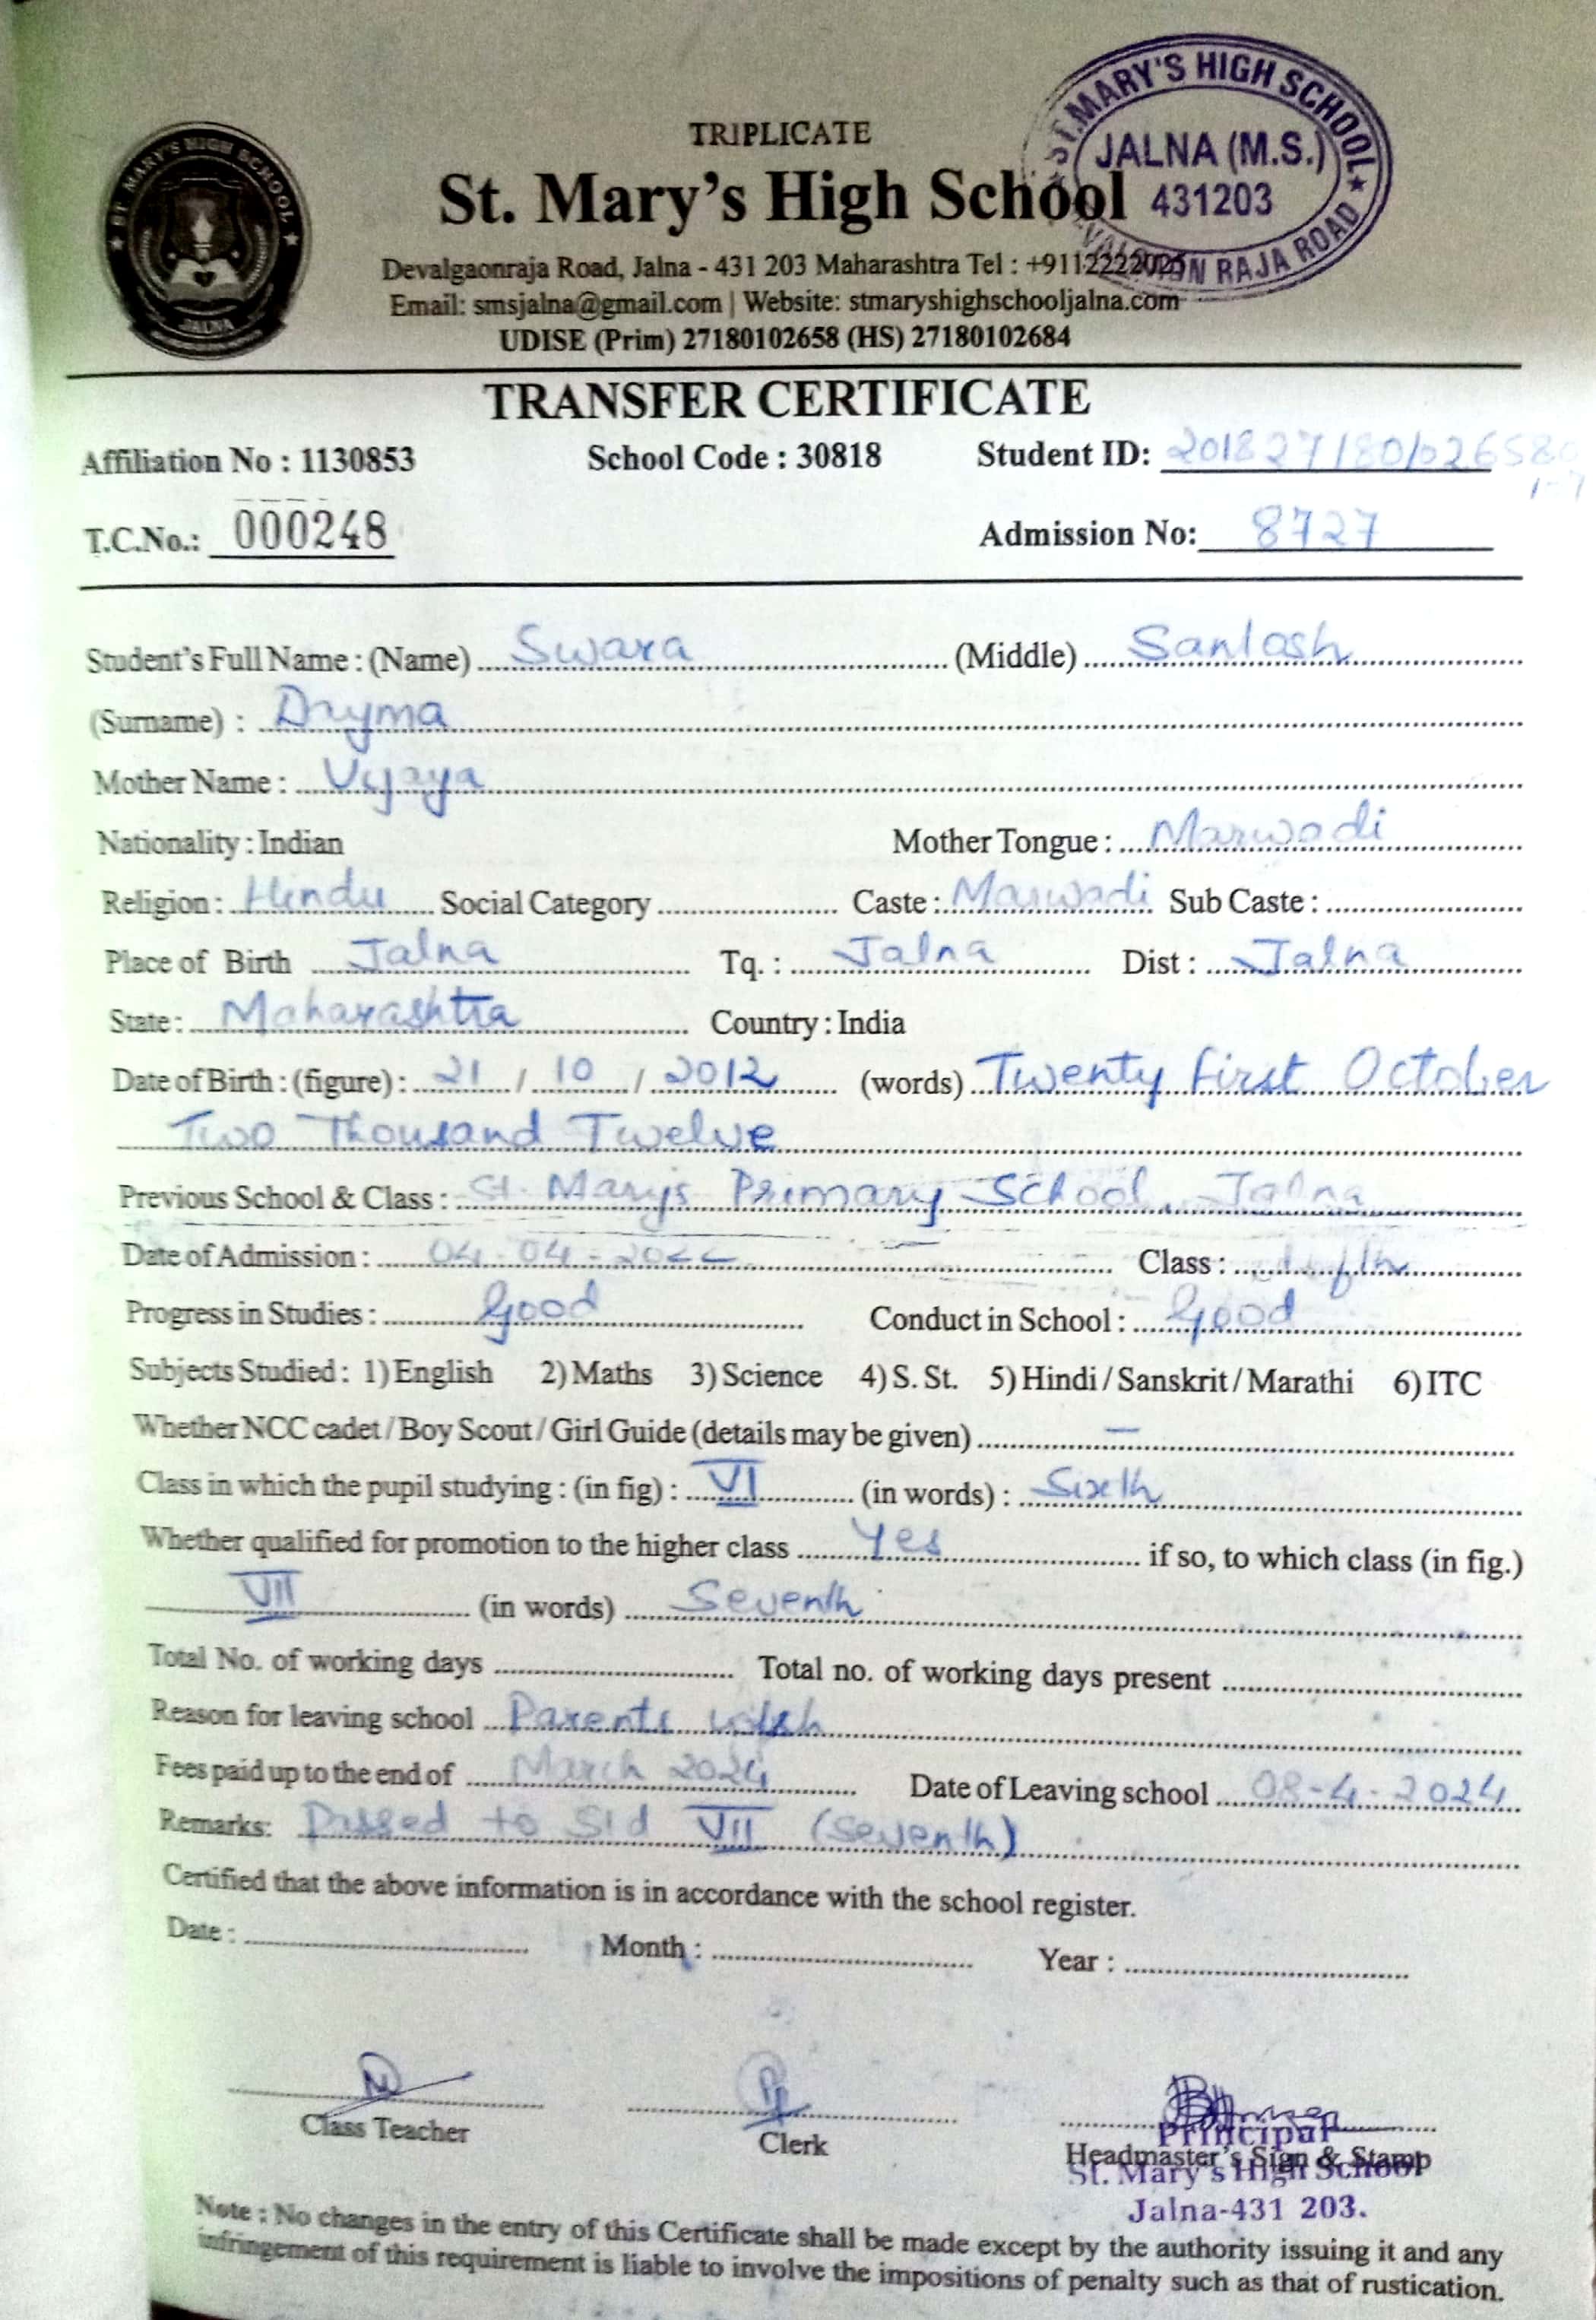 TRIPLICATE
St. Mary's High School
ST. MARY'S HIGH SCHOOL
JALNA (M.S.)
431203
RAJA ROAD
ST MARY'S HIGH SCHOOL
JALNA
Devalgaonraja Road, Jalna - 431 203 Maharashtra Tel : +9112222025
Email: smsjalna@gmail.com | Website: stmaryshighschooljalna.com
UDISE (Prim) 27180102658 (HS) 27180102684
TRANSFER CERTIFICATE
Affiliation No : 1130853 School Code : 30818 Student ID:
T.C.No.: 000248 Admission No: 8727
Student's Full Name : (Name) Swara (Middle) Santosh
(Surname) :
Mother Name : Vijaya
Nationality : Indian Mother Tongue : Marwadi
Religion : Hindu Social Category Caste : Marwadi Sub Caste :
Place of Birth Jalna Tq. : Jalna Dist : Jalna
State : Maharashtra Country : India
Date of Birth : (figure) : 21 / 10 / 2012 (words) Twenty First October
Two Thousand Twelve
Previous School & Class : St. Marys Primary School, Jalna
Date of Admission : 04-04-2022 Class :
Progress in Studies : Good Conduct in School : Good
Subjects Studied : 1) English 2) Maths 3) Science 4) S. St. 5) Hindi / Sanskrit / Marathi 6) ITC
Whether NCC cadet / Boy Scout / Girl Guide (details may be given) —
Class in which the pupil studying : (in fig) : VI (in words) : Sixth
Whether qualified for promotion to the higher class Yes if so, to which class (in fig.)
VII (in words) Seventh
Total No. of working days Total no. of working days present
Reason for leaving school Parents wish
Fees paid up to the end of March 2024 Date of Leaving school 08-4-2024
Remarks: Passed to Std VII (Seventh)
Certified that the above information is in accordance with the school register.
Date : Month : Year :
Class Teacher Clerk Headmaster's Sign & Stamp
Principal
St. Mary's High School
Jalna-431 203.
Note : No changes in the entry of this Certificate shall be made except by the authority issuing it and any
infringement of this requirement is liable to involve the impositions of penalty such as that of rustication.